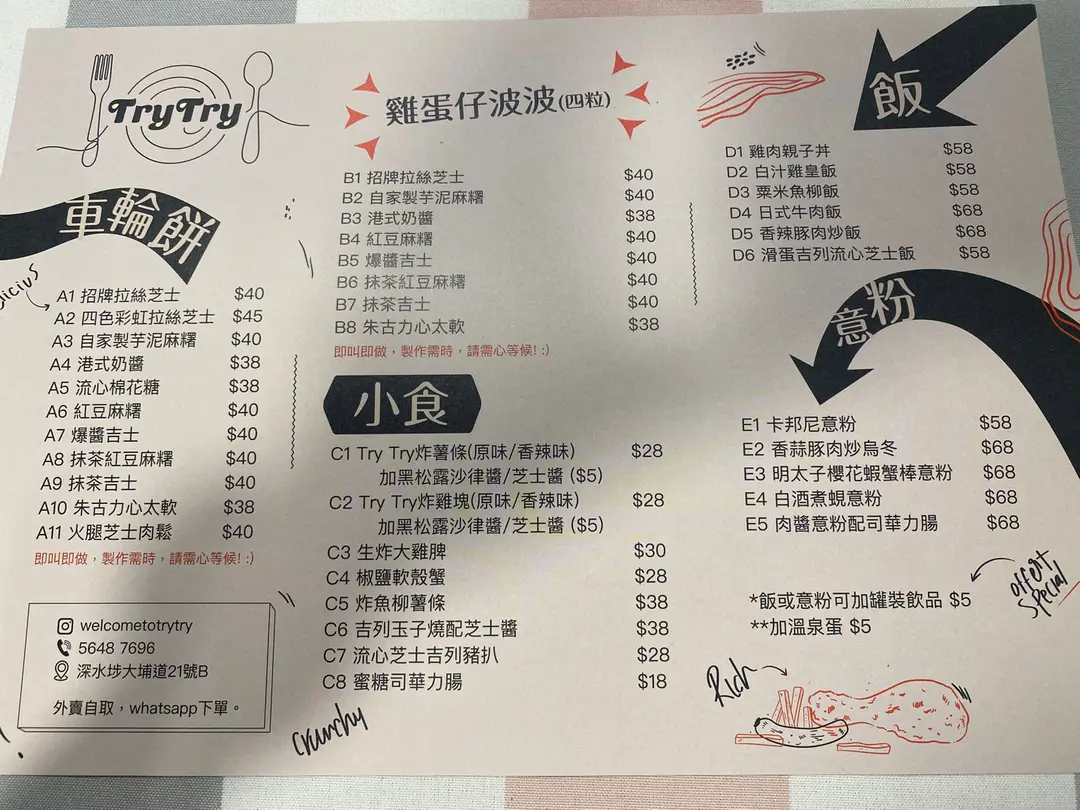 TryTry
車輪餅
A1 招牌拉絲芝士 $40
A2 四色彩虹拉絲芝士 $45
A3 自家製芋泥麻糬 $40
A4 港式奶醬 $38
A5 流心棉花糖 $38
A6 紅豆麻糬 $40
A7 爆醬吉士 $40
A8 抹茶紅豆麻糬 $40
A9 抹茶吉士 $40
A10 朱古力心太軟 $38
A11 火腿芝士肉鬆 $40
即叫即做，製作需時，請需心等候! :)
welcometotrytry
5648 7696
深水埗大埔道21號B
外賣自取，whatsapp下單。
雞蛋仔波波(四粒)
B1 招牌拉絲芝士 $40
B2 自家製芋泥麻糬 $40
B3 港式奶醬 $38
B4 紅豆麻糬 $40
B5 爆醬吉士 $40
B6 抹茶紅豆麻糬 $40
B7 抹茶吉士 $40
B8 朱古力心太軟 $38
即叫即做，製作需時，請需心等候! :)
小食
C1 Try Try炸薯條(原味/香辣味) $28
加黑松露沙律醬/芝士醬 ($5)
C2 Try Try炸雞塊(原味/香辣味) $28
加黑松露沙律醬/芝士醬 ($5)
C3 生炸大雞脾 $30
C4 椒鹽軟殼蟹 $28
C5 炸魚柳薯條 $38
C6 吉列玉子燒配芝士醬 $38
C7 流心芝士吉列豬扒 $28
C8 蜜糖司華力腸 $18
crunchy
飯
D1 雞肉親子丼 $58
D2 白汁雞皇飯 $58
D3 粟米魚柳飯 $58
D4 日式牛肉飯 $68
D5 香辣豚肉炒飯 $68
D6 滑蛋吉列流心芝士飯 $58
意粉
E1 卡邦尼意粉 $58
E2 香蒜豚肉炒烏冬 $68
E3 明太子櫻花蝦蟹棒意粉 $68
E4 白酒煮蜆意粉 $68
E5 肉醬意粉配司華力腸 $68
*飯或意粉可加罐裝飲品 $5
**加溫泉蛋 $5
special
Rich